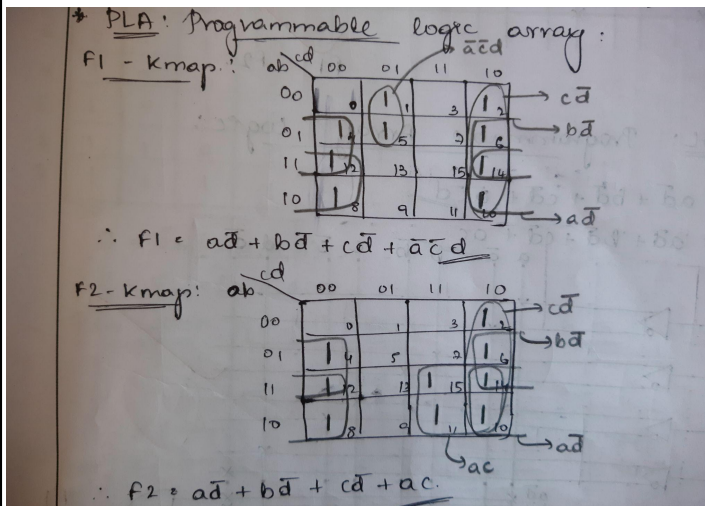 * PLA: Programmable logic array:
F1 - Kmap: ab cd 00 01 11 10 āc̄d
00 0 1 1 3 1 2 → cd̄
01 1 4 1 5 7 1 6 → bd̄
11 1 12 13 15 1 14
10 1 8 9 11 1 10 → ad̄
∴ F1 = ad̄ + bd̄ + cd̄ + āc̄d
F2 - Kmap: ab cd 00 01 11 10 → cd̄
00 0 1 3 1 2 → bd̄
01 1 4 5 7 1 6
11 1 12 13 1 15 1 14
10 1 8 9 1 11 1 10 → ad̄
→ ac
∴ F2 = ad̄ + bd̄ + cd̄ + ac.